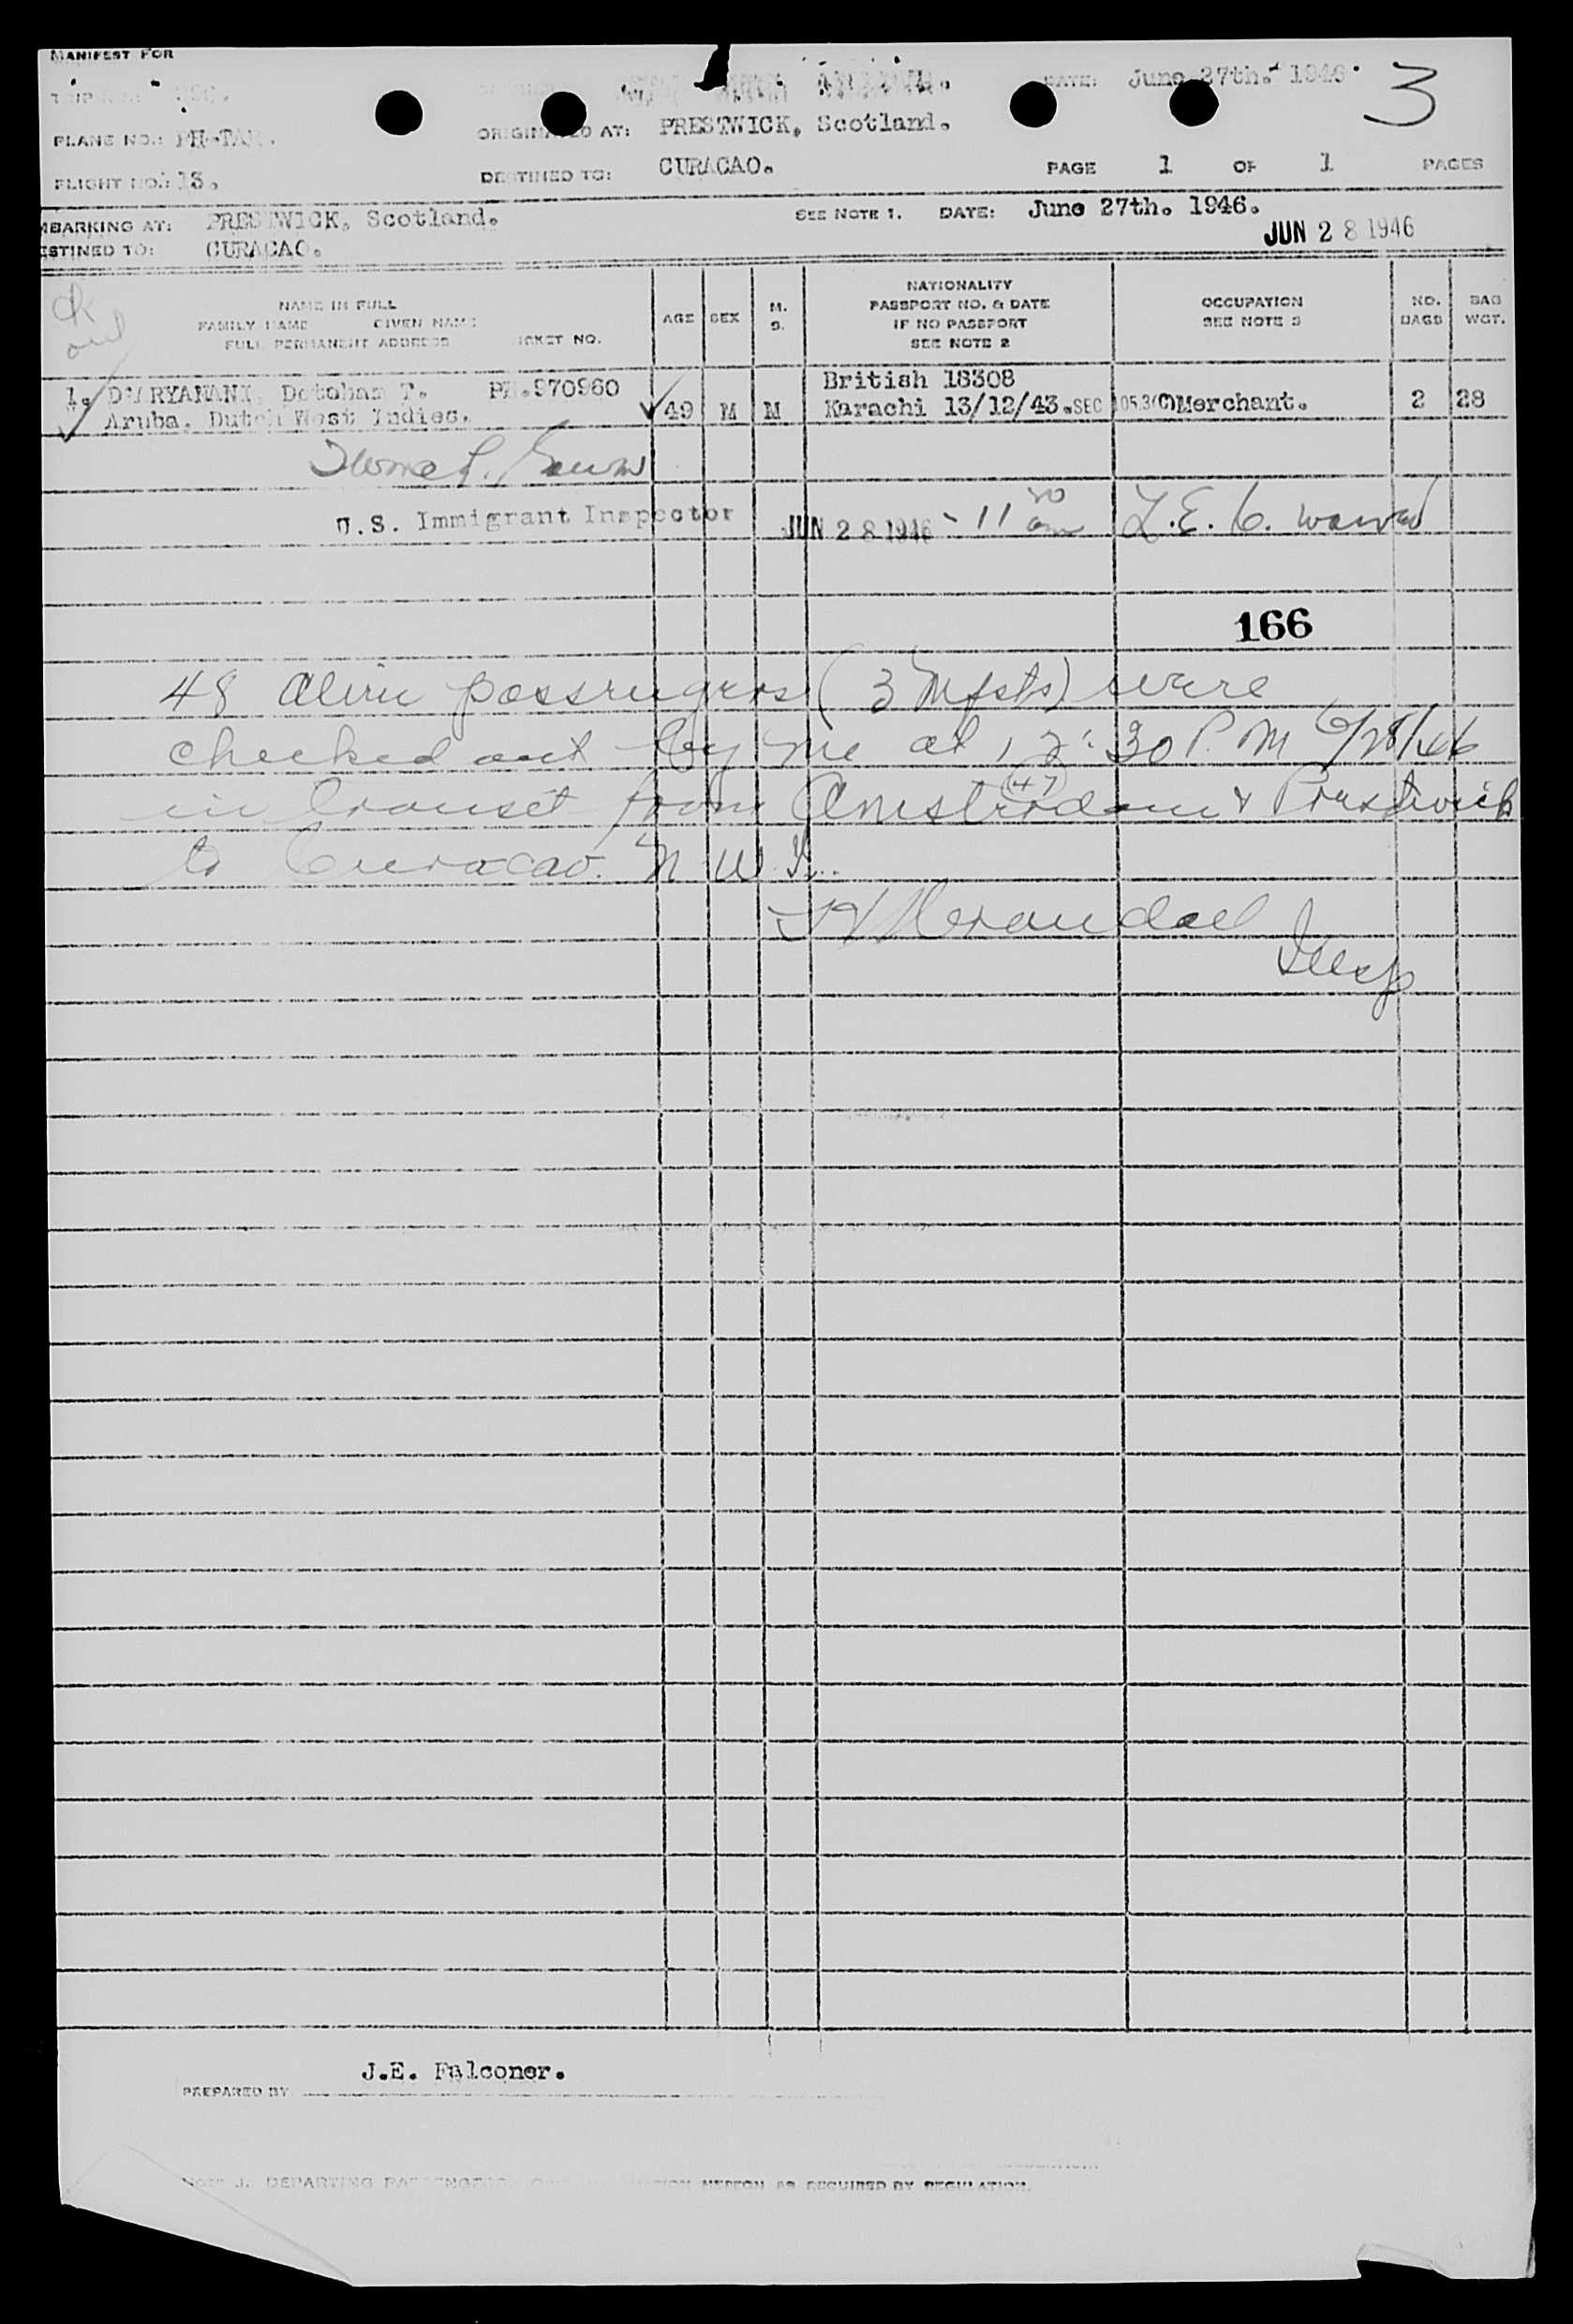 MANIFEST FOR
DATE: June 27th. 1946 3
PLANE NO.: PH-TAR. ORIGINATED AT: PRESTWICK, Scotland.
FLIGHT NO.: 13. DESTINED TO: CURACAO. PAGE 1 OF 1 PAGES
MBARKING AT: PRESTWICK, Scotland. SEE NOTE 1. DATE: June 27th. 1946.
ESTINED TO: CURACAO. JUN 28 1946
ck out
NAME IN FULL
FAMILY NAME GIVEN NAME
FULL PERMANENT ADDRESS TICKET NO.
AGE SEX M. S.
NATIONALITY
PASSPORT NO. & DATE
IF NO PASSPORT
SEE NOTE 2
OCCUPATION
SEE NOTE 3
NO. BAGS
BAG WGT.
1. DARYANANI, Detoham T. PH.970960 British 18308
Aruba. Dutch West Indies. 49 M M Karachi 13/12/43. SEC 105.3(C) Merchant. 2 28
U.S. Immigrant Inspector JUN 28 1946 - 11 30 am
166
48 alien passengers (3 Mfsts) were
checked out by me at 12:30 P.M 6/28/46
in transit from (47) Amsterdam & Prestwick
to Curacao. N.W.I.
Insp
J.E. Falconer.
PREPARED BY
DEPARTING PASSENGERS HEREON AS REQUIRED BY REGULATION.